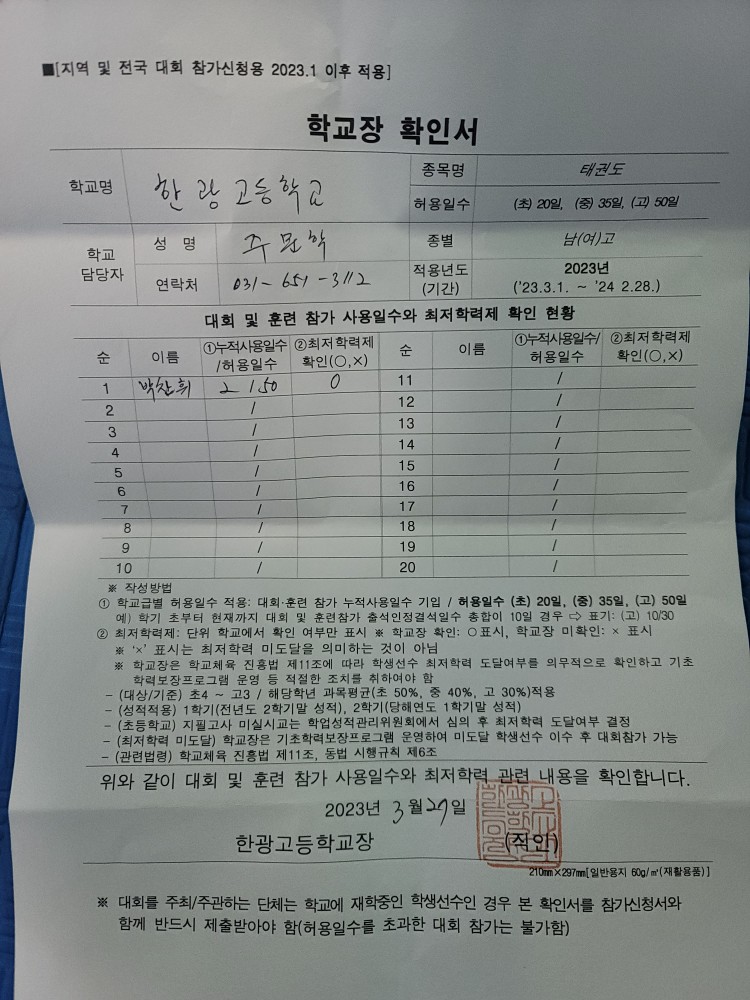 ■[지역 및 전국 대회 참가신청용 2023.1 이후 적용]
학교장 확인서
학교명 한광고등학교 종목명 태권도
허용일수 (초) 20일, (중) 35일, (고) 50일
학교 담당자 성 명 주문학 종별 남(여)고
연락처 031-651-3112 적용년도 (기간) 2023년 ('23.3.1. ~ '24 2.28.)
대회 및 훈련 참가 사용일수와 최저학력제 확인 현황
순 이름 ①누적사용일수/허용일수 ②최저학력제 확인(○,×) 순 이름 ①누적사용일수/허용일수 ②최저학력제 확인(○,×)
1 박찬휘 2 / 50 0 11 /
2 / 12 /
3 / 13 /
4 / 14 /
5 / 15 /
6 / 16 /
7 / 17 /
8 / 18 /
9 / 19 /
10 / 20 /
※ 작성방법
① 학교급별 허용일수 적용: 대회·훈련 참가 누적사용일수 기입 / 허용일수 (초) 20일, (중) 35일, (고) 50일
예) 학기 초부터 현재까지 대회 및 훈련참가 출석인정결석일수 총합이 10일 경우 ⇨ 표기: (고) 10/30
② 최저학력제: 단위 학교에서 확인 여부만 표시 ※ 학교장 확인: ○표시, 학교장 미확인: × 표시
※ '×' 표시는 최저학력 미도달을 의미하는 것이 아님
※ 학교장은 학교체육 진흥법 제11조에 따라 학생선수 최저학력 도달여부를 의무적으로 확인하고 기초
학력보장프로그램 운영 등 적절한 조치를 취하여야 함
- (대상/기준) 초4 ~ 고3 / 해당학년 과목평균(초 50%, 중 40%, 고 30%)적용
- (성적적용) 1학기(전년도 2학기말 성적), 2학기(당해연도 1학기말 성적)
- (초등학교) 지필고사 미실시교는 학업성적관리위원회에서 심의 후 최저학력 도달여부 결정
- (최저학력 미도달) 학교장은 기초학력보장프로그램 운영하여 미도달 학생선수 이수 후 대회참가 가능
- (관련법령) 학교체육 진흥법 제11조, 동법 시행규칙 제6조
위와 같이 대회 및 훈련 참가 사용일수와 최저학력 관련 내용을 확인합니다.
2023년 3월 27일
한광고등학교장 (직인)
210㎜×297㎜[일반용지 60g/㎡(재활용품)]
※ 대회를 주최/주관하는 단체는 학교에 재학중인 학생선수인 경우 본 확인서를 참가신청서와
함께 반드시 제출받아야 함(허용일수를 초과한 대회 참가는 불가함)